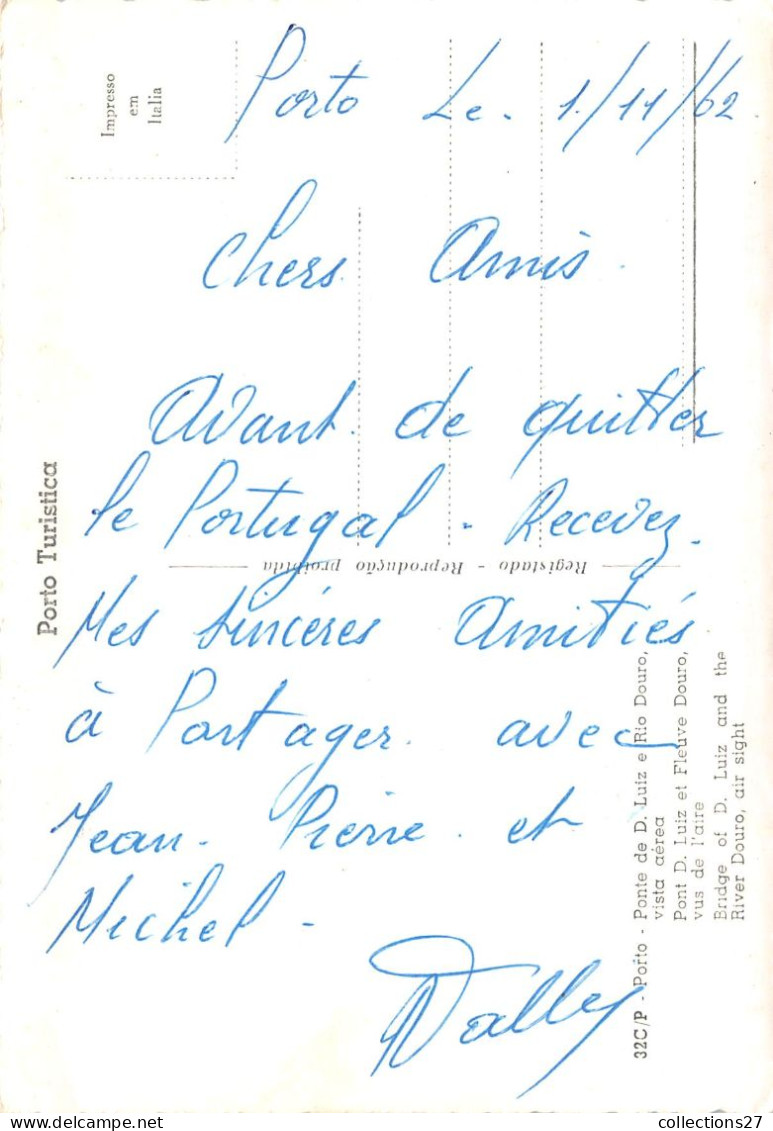 Porto Le. 1/11/62
Chers Amis.
Avant de quitter
le Portugal - Recevez.
Mes sincéres Amitiés
à Partager avec
Jean-Pierre et
Michel -
Impresso
em
Italia
Porto Turistica
Registado - Reprodução proibida
32C/P - Porto - Ponte de D. Luiz e Rio Douro,
vista aérea
Pont D. Luiz et Fleuve Douro,
vus de l'aire
Bridge of D. Luiz and the
River Douro, air sight
collections27